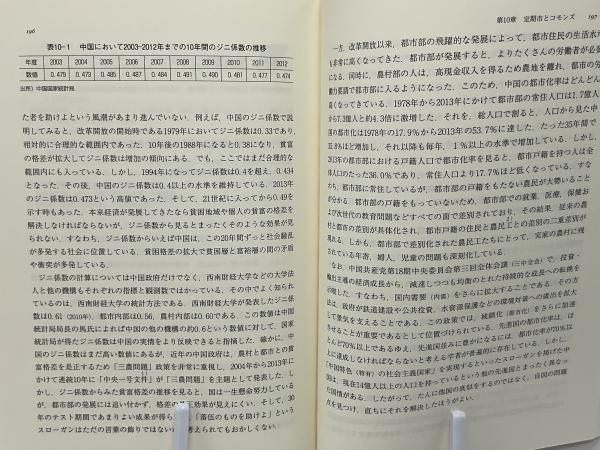 196
表10-1　中国において2003-2012年までの10年間のジニ係数の推移
年度 2003 2004 2005 2006 2007 2008 2009 2010 2011 2012
数値 0.479 0.473 0.485 0.487 0.484 0.491 0.490 0.481 0.477 0.474
出所）中国国家統計局.
た者を助けよという風潮があまり進んでいない．例えば，中国のジニ係数で説
明してみると，改革開放の開始時である1979年においてジニ係数は0.33であり，
相対的に合理的な範囲内であった．10年後の1988年になると0.38になり，貧富
の格差が拡大してジニ係数は増加の傾向にある．でも，ここではまだ合理的な
範囲内にも入っている．しかし，1994年になってジニ係数は0.4を超え，0.434
となった．その後，中国のジニ係数は0.4以上の水準を維持している．2013年
のジニ係数は0.473という高値であった．そして，21世紀に入ってから0.49を
示す時もあった．本来経済が発展してきたなら貧困地域や個人の貧富の格差を
解決しなければならないが，ジニ係数から見るとまったくそのような効果が見
られない．すなわち，ジニ係数からいえば中国は，この20年間ずっと社会騒乱
が多発する社会に位置している．貧困格差の拡大で貧困層と富裕層の間の矛盾
や衝突が多発している．
ジニ係数の計算については中国政府だけでなく，西南財経大学などの大学法
人と他の機構もそれぞれの指標と観測数ではかっている．その中でよく知られ
ているのは，西南財経大学の統計方法である．西南財経大学が発表したジニ係
数は0.61（2010年），都市内部は0.56，農村内部は0.60である．この数値は中国
統計局局長の馬氏によれば中国の他の機構の約0.6という数値に対して，国家
統計局が得たジニ係数は中国の実情をより反映できると指摘した．確かに，中
国のジニ係数はまだ高い数値にあるが，近年の中国政府は，農村と都市との貧
富格差を是正するため「三農問題」政策を非常に重視し，2004年から2013年に
かけて連続10年に「中央一号文件」が「三農問題」を主題として発表した．し
かし，ジニ係数からみた貧富格差の推移を見ると，国は一生懸命努力している
が，都市部の発展には追い付かず，格差の
効果が見えにくい．そして，30
年のテスト期間であまりよい成果が得ら
「落伍のものを助けよ」という
スローガンはただの言葉の飾りではないか
考えられてもおかしくない．
第10章　定期市とコモンズ　197
一方，改革開放以来，都市部の飛躍的な発展によって，都市住民の生活水
も非常に高くなってきた．都市部が発展すると，よりたくさんの労働者が必要
になる．同時に，農村部の人は，高現金収入を得るため農地を離れ，都市の
動力要請で都市部に入るようになった．このため，中国の都市化はどんどん
高くなってきている．1978年から2013年にかけて都市部の常住人口は1.7億人
から7.3億人と約4.3倍に激増した．それを，総人口で割ると，人口から見た中
国の都市化は1978年の17.9%から2013年の53.7%に達した．たった35年間で
35.8%ほど増加し，それ以降も毎年，1%以上の水準で増加している．しかし，
2013年の都市部における戸籍人口で都市化率を見ると，都市戸籍を持つ人は全
体人口のたった36.0%であり，常住人口より17.7%ほど低くなっている．すな
わち，都市部に常住しているが，都市部の戸籍をもたない農民が大勢いること
が分かる．都市部の戸籍をもっていないため，都市部での就業，医療，保健お
よび次世代の教育問題などすべての面で差別されており，その結果，従来の農
村と都市の差別が具体化され，都市戸籍の住民と農民工との差別の二重差別が
現れる．しかも，都市部で差別化された農民工たちにとって，実家の農村に残
されている年寄，婦人，児童の問題も深刻化している．
なお，中国共産党第18期中央委員会第三回全体会議（三中全会）で，投資・
輸出主導の経済成長から，減速しつつも均衡のとれた持続的な成長への転換を
示唆した．すなわち，国内需要（内需）をさらに拡大することである．その方
法は，政府が鉄道建設や公共投資，水資源保護などの環境対策への歳出を拡大
して景気を支えることである．この政策では，城鎮化（都市化）をさらに加速
させることが重要であるとして位置づけられている．先進国の都市化率は，ほ
とんど70%以上であるゆえ，先進国並みに豊かになるには，都市化率が70%以
上に達成しなければならないと考える学者が普遍的に存在している．しかし，
「中国特色（特有）の社会主義国家」を実現するといったスローガンを掲げた中
国は，現在14億人以上の人口を持っているという他の先進国とまったく異なっ
た国情がある．したがって，たんに他国の真似をするのではなく，自国の問題
点を見つけ，直ちにそれを解決したほうがよい．